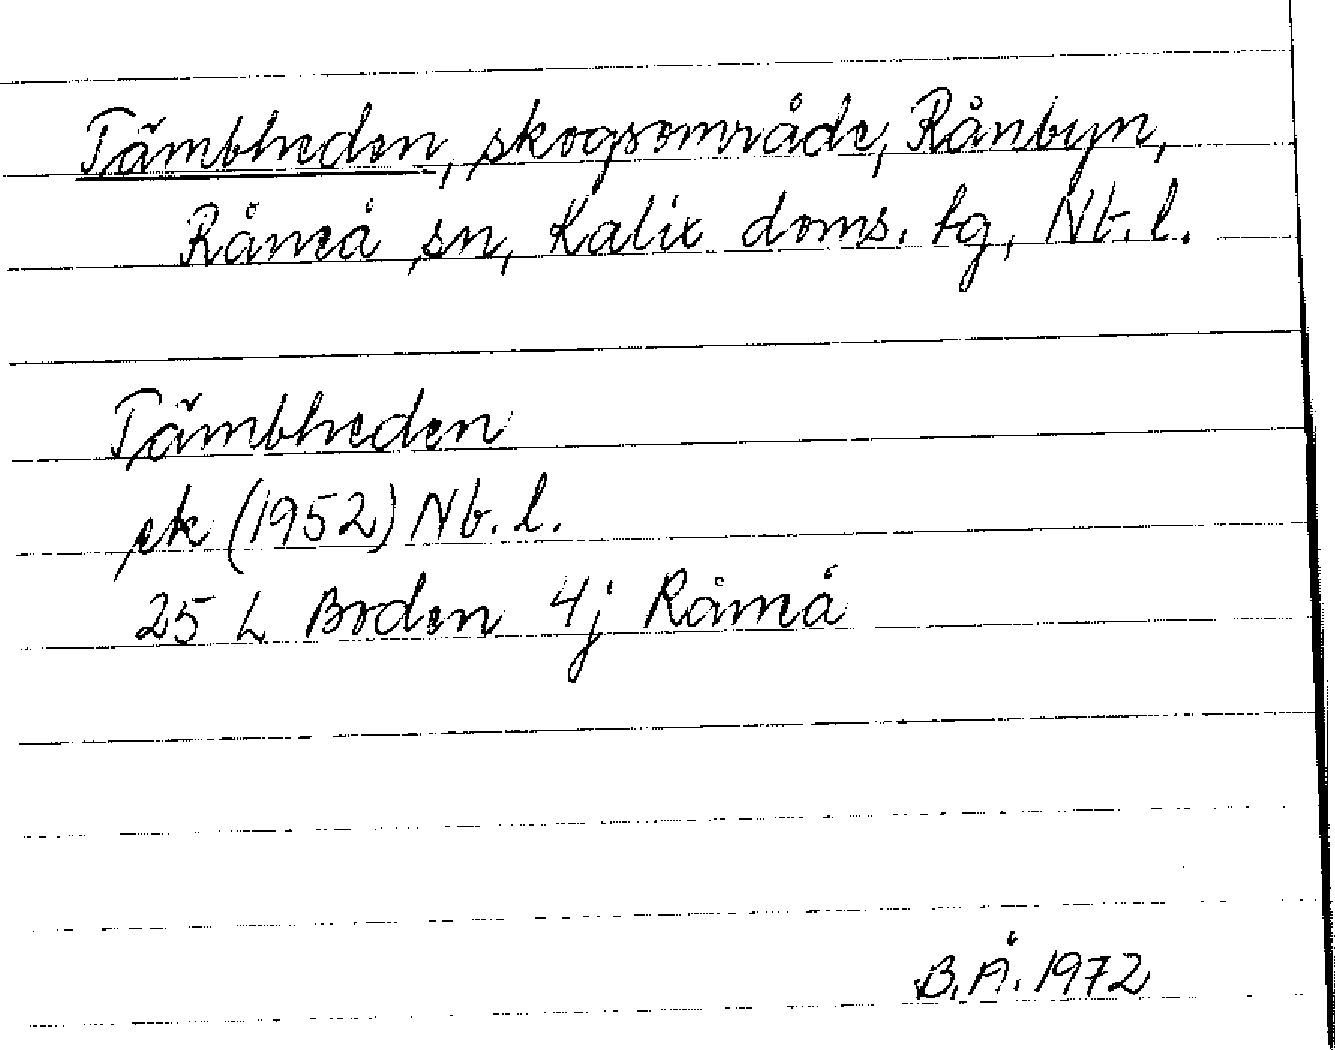 Tämbheden, skogsområde, Rånbyn,
Råneå sn, Kalix doms. tg, Nb. l.
Tämbheden
ek (1952) Nb. l.
25 L Boden 4j Råneå
B.Å. 1972